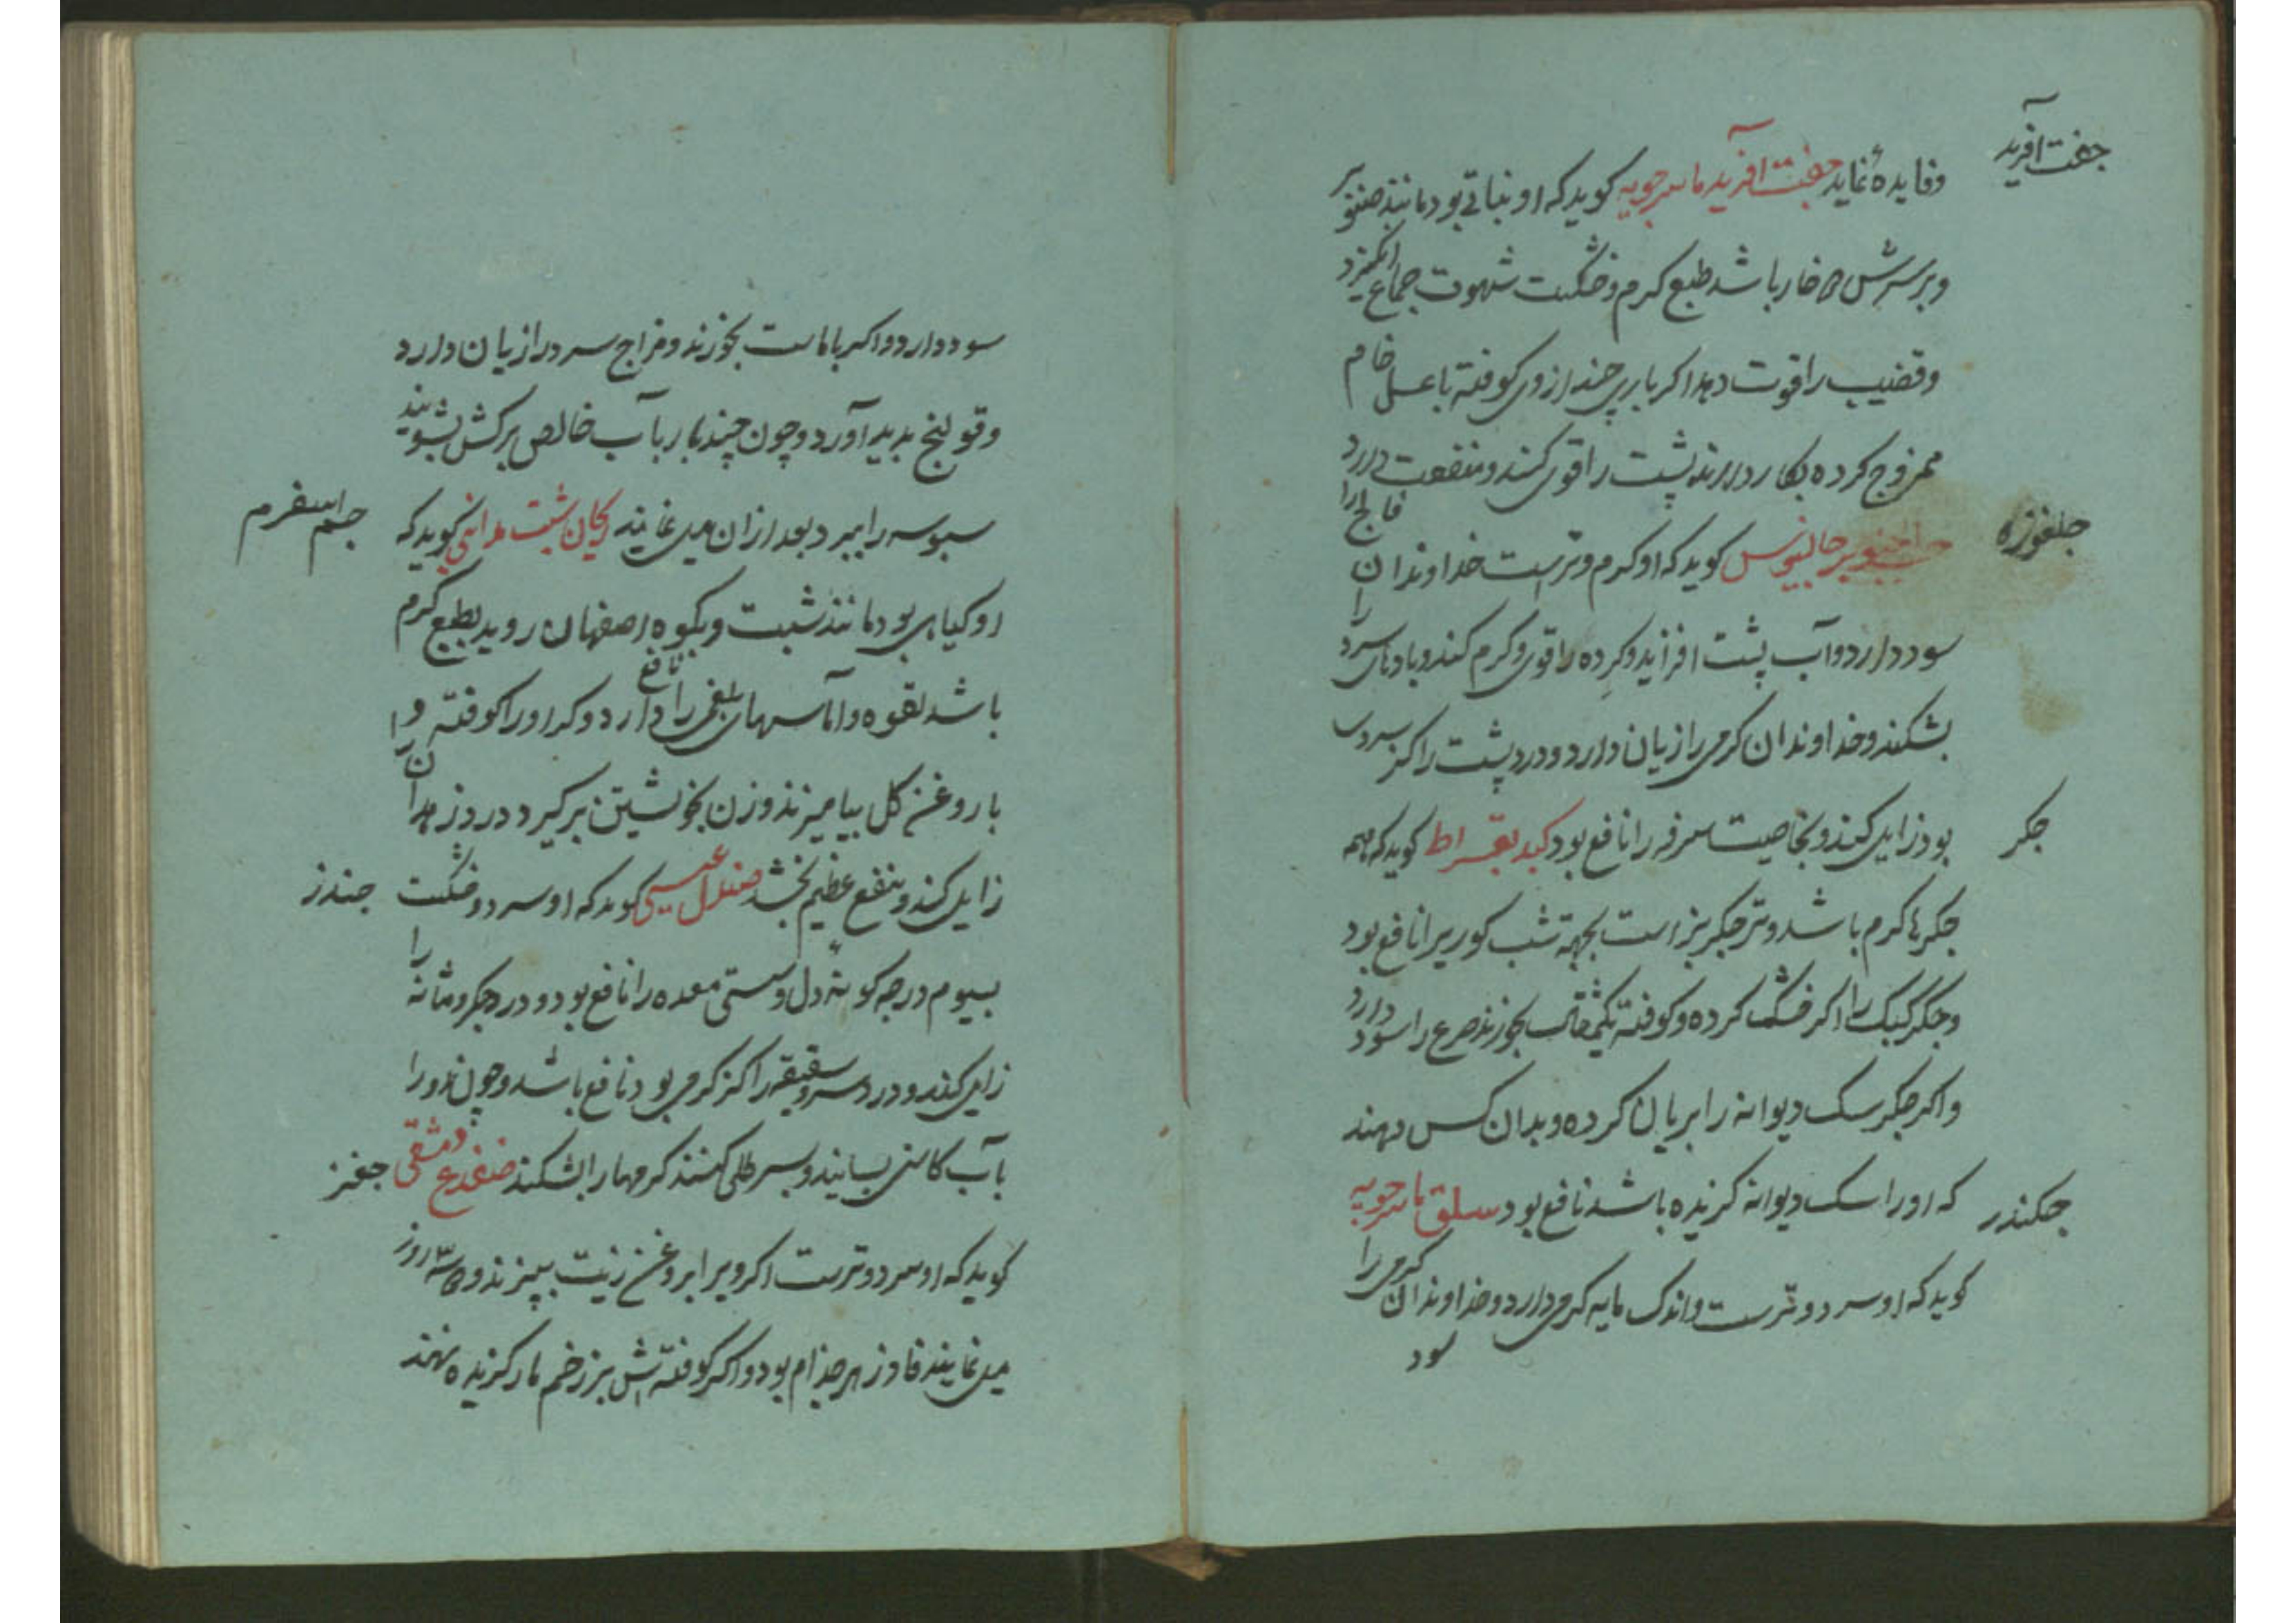 جفت آفرید
وفایده نماید جفت آفرید ماسرجویه کوید که او نباتی بود مانند صنوبر
وبرسرش خار باشد طبع کرم و خشکست شهوت جماع انکیزد
وقضیب را قوت دهد اکر باری چند از وی کوفته با عسل خام
ممزوج کرده بکار دارند پشت را قوی کند و منفعت دارد
جلغوزه
فالج را
حب الصنوبر جالینوس کوید که او کرم و ترست خداوندان
را
سود دارد و آب پشت افزاید و کرده را قوی و کرم کند و بادهای سرد
بشکند و خداوندان کرمی را زیان دارد و درد پشت را کز سردی
جکر
بود زایل کند و بخاصیت سرفه را نافع بود کبد بقراط کوید که همه
جکرها کرم باشد و تر جکر بز است بجهة شب کوری را نافع بود
وجکر کبک را اکر خشک کرده و کوفته یکمثقال بخورند صرع را سود دارد
واکر جکر سک دیوانه را بریان کرده و بدان کس دهند
جکندر
که او را سک دیوانه کزیده باشد نافع بود سلق ماسرجویه
کوید که او سرد و ترست و اندک مایه کرمی دارد و خداوندان کرمی را
سود
سود دارد و اکر با ماست بخورند و مزاج سرد را زیان دارد
وقولنج پدید آورد و چون چند بار بآب خالص برکش بشویند
جم اسفرم
سبوسه را ببرد بعد ازان میل نمایند ریحان شبت مداینی کوید که
او کیاهی بود مانند شبت و بکوه اصفهان روید بطبع کرم
باشد لقوه و آماسهای بلغمی را نافع دارد و کر او را کوفته و
با روغن کل بیامیزند و زن بخویشتن برکیرد درد زهدان را
جندز
زایل کند و نفع عظیم بخشد صندل عیسی کوید که او سرد و خشکست
بسیوم درجه کوید دل و سستی معده را نافع بود و درد جکر و مثانه را
زایل کند و درد سر و شقیقه را کز کرمی بود نافع باشد و چون او را
جغز
بآب کاسنی بسایند و بسر طلی کنند کرمها را بشکند ضفدع دمشقی
کوید که او سرد و ترست اکر ویرا بروغن زیت بپزند و سه روز
میل نمایند فاوزهر جذام بود و اکر کوفته اش بر زخم مار کزیده نهند